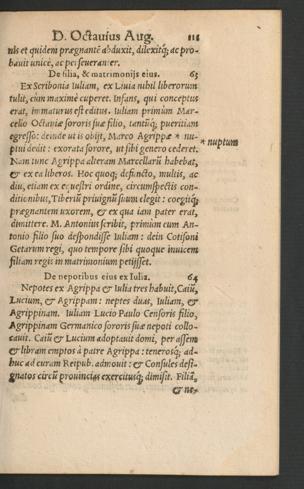 D. Octauius Aug. 118
nis et quidem prægnantē abduxit, dilexitq́; ac pro-
bauit vnicè, ac perseueranter.
De filia, & matrimonijs eius. 63
Ex Scribonia Iuliam, ex Liuia nihil liberorum
tulit, cùm maximè cuperet. Infans, qui conceptus
erat, immaturus est editus. Iuliam primùm Mar-
cello Octauiæ sororis suæ filio, tantū; pueritiam
egresso: deinde ut is obijt, Marco Agrippæ * nu-
ptui dedit: exorata sorore, ut sibi genero cederet.
* nuptum
Nam tunc Agrippa alteram Marcellarū habebat,
& ex ea liberos. Hoc quoq; defuncto, multis, ac
diu, etiam ex equestri ordine, circumspectis con-
ditionibus, Tiberiū priuignū suum elegit: coegitq́;
prægnantem uxorem, & ex qua iam pater erat,
dimittere. M. Antonius scribit, primùm eum An-
tonio filio suo despondisse Iuliam: dein Cotisoni
Getarum regi, quo tempore sibi quoque inuicem
filiam regis in matrimonium petijsset.
De nepotibus eius ex Iulia. 64
Nepotes ex Agrippa & Iulia tres habuit, Caiū,
Lucium, & Agrippam: neptes duas, Iuliam, &
Agrippinam. Iuliam Lucio Paulo Censoris filio,
Agrippinam Germanico sororis suæ nepoti collo-
cauit. Caiū & Lucium adoptauit domi, per assem
& libram emptos à patre Agrippa: tenerosq́; ad-
huc ad curam Reipub. admouit: & Consules desi-
gnatos circū prouincias exercitusq́; dimisit. Filiā,
& ne-